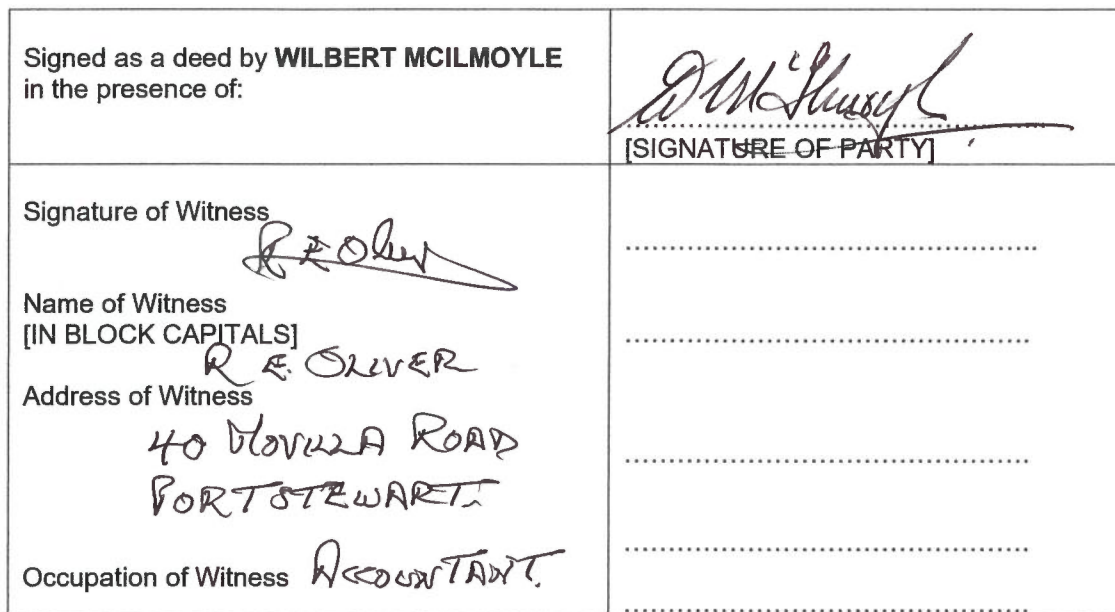 Signed as a deed by WILBERT MCILMOYLE
in the presence of:
[SIGNATURE OF PARTY]
Signature of Witness
R E Oliver
Name of Witness
[IN BLOCK CAPITALS]
R E. OLIVER
Address of Witness
40 MOVILLA ROAD
PORTSTEWART.
Occupation of Witness ACCOUNTANT.